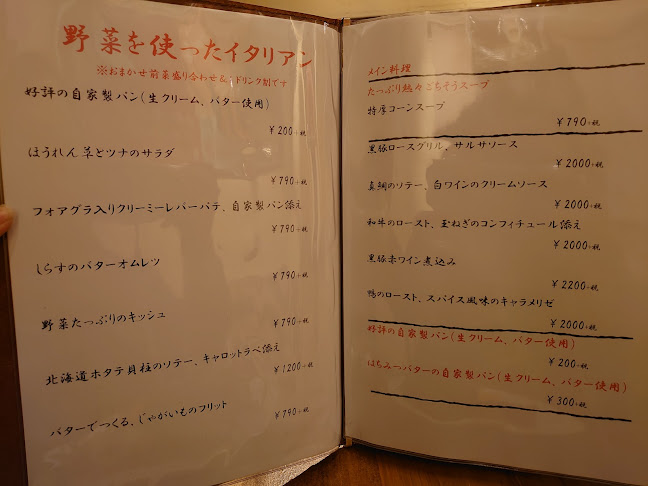 野菜を使ったイタリアン
※おまかせ前菜盛り合わせ&1ドリンク制です
好評の自家製パン(生クリーム、バター使用)
¥200+税
ほうれん草とツナのサラダ
¥790+税
フォアグラ入りクリーミーレバーパテ、自家製パン添え
¥790+税
しらすのバターオムレツ
¥790+税
野菜たっぷりのキッシュ
¥790+税
北海道ホタテ貝柱のソテー、キャロットラペ添え
¥1200+税
バターでつくる、じゃがいものフリット
¥790+税
メイン料理
たっぷり熱々ごちそうスープ
特厚コーンスープ
¥790+税
黒豚ロースグリル、サルサソース
¥2000+税
真鯛のソテー、白ワインのクリームソース
¥2000+税
和牛のロースト、玉ねぎのコンフィチュール添え
¥2000+税
黒豚赤ワイン煮込み
¥2200+税
鴨のロースト、スパイス風味のキャラメリゼ
¥2000+税
好評の自家製パン(生クリーム、バター使用)
¥200+税
はちみつバターの自家製パン(生クリーム、バター使用)
¥300+税